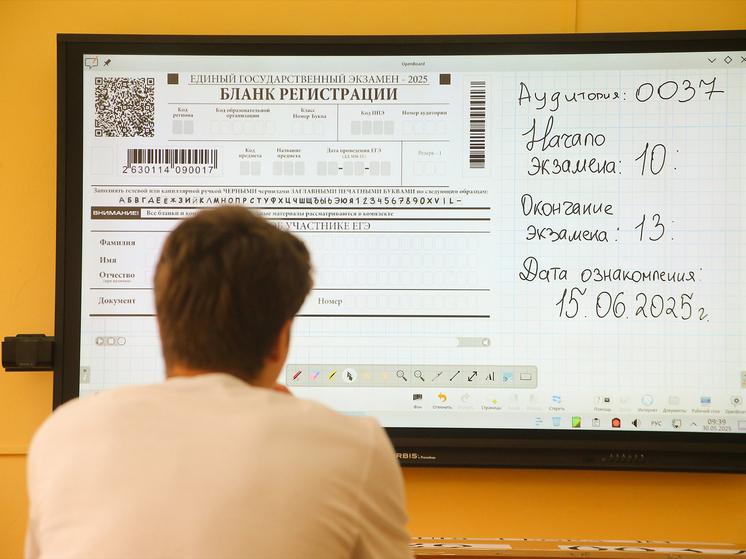 OpenBoard
ЕДИНЫЙ ГОСУДАРСТВЕННЫЙ ЭКЗАМЕН - 2025
БЛАНК РЕГИСТРАЦИИ
Код региона
Код образовательной организации
Класс
Номер Буква
Код ППЭ
Номер аудитории
2630114090017
Код предмета
Название предмета
Дата проведения ЕГЭ
(ДД-ММ-ГГ)
Резерв - 1
Заполнять гелевой или капиллярной ручкой ЧЕРНЫМИ чернилами ЗАГЛАВНЫМИ ПЕЧАТНЫМИ БУКВАМИ по следующим образцам:
АБВГДЕЁЖЗИЙКЛМНОПРСТУФХЦЧШЩЪЫЬЭЮЯ1234567890XVIL-
ВНИМАНИЕ!
Все бланки и материалы рассматриваются в комплекте
ОБ УЧАСТНИКЕ ЕГЭ
Фамилия
Имя
Отчество
(при наличии)
Документ
Номер
Аудитория: 0037
Начало
экзамена: 10:
Окончание
экзамена: 13:
Дата ознакомления:
15.06.2025г.
Фон
Отменить
Страницы
Стереть
Помощь
Интернет
Документы
Рабочий стол
OpenBoard
РУС
09:39
30.05.2025